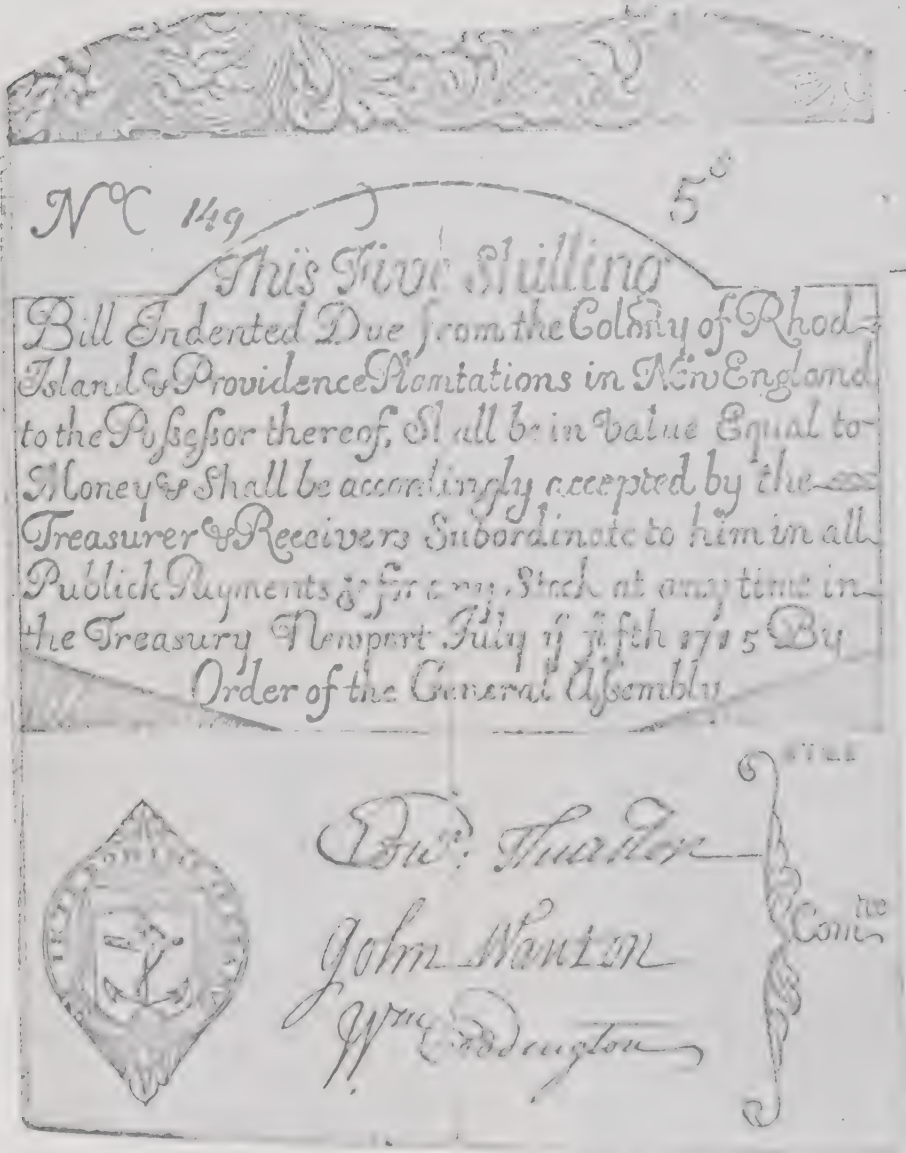 No 149 5s
This Five Shilling
Bill Indented Due from the Colony of Rhod-
Island & Providence Plantations in New England
to the Possessor thereof, Shall be in Value Equal to
Money & Shall be accordingly accepted by the
Treasurer & Receivers Subordinate to him in all
Publick Payments & for any Stock at any time in
the Treasury Newport July ye fifth 1715 By
Order of the General Assembly
Edwd. Thurston
John Wanton
Comtee
Wm Coddington